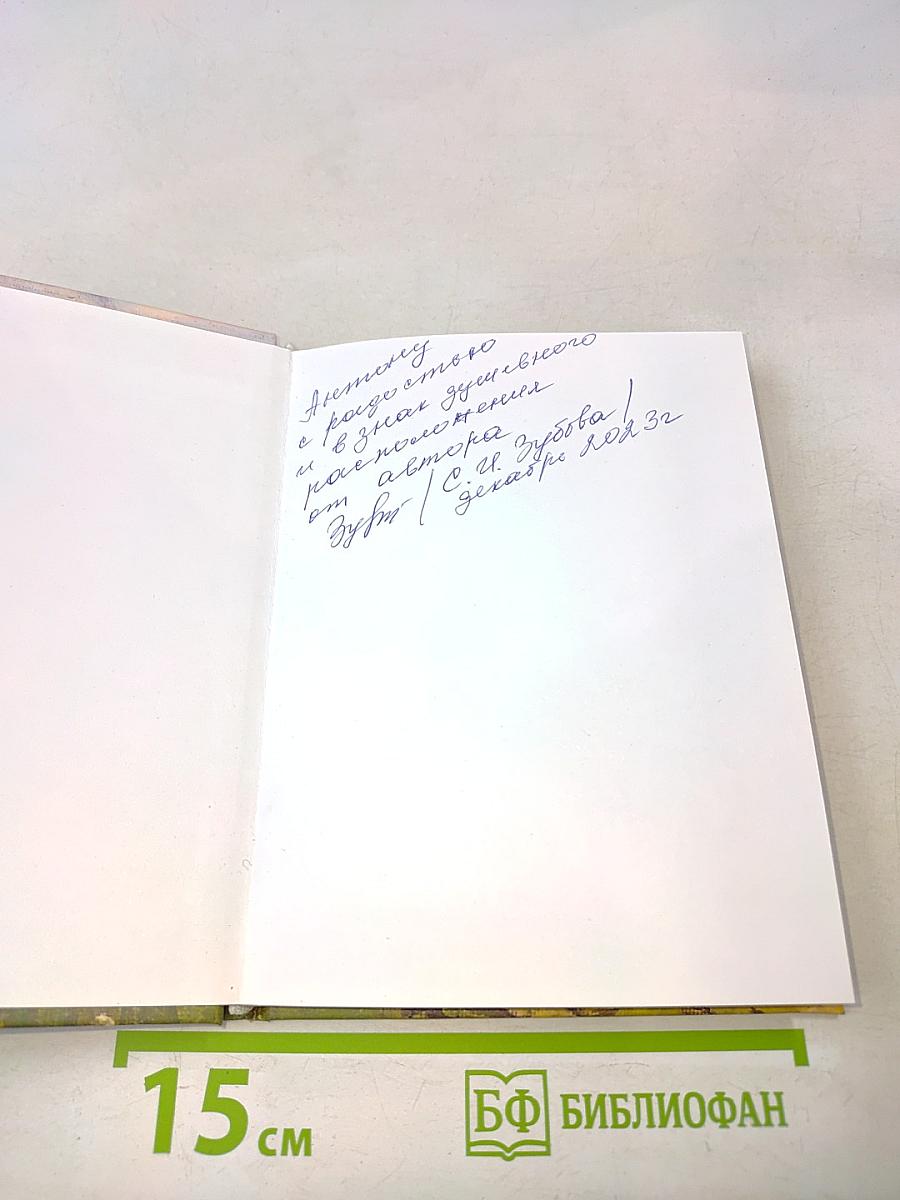 Антону
с радостью
и в знак душевного
расположения
от автора
Зубт / С. И. Зубова /
декабрь 2023г
15 см
БФ БИБЛИОФАН